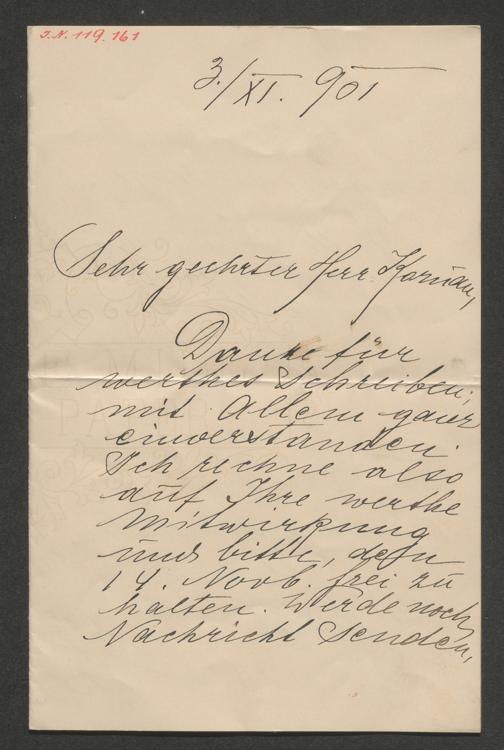 I.N. 119.161
3./XI. 901
Sehr geehrter Herr
Danke für
werthes Schreiben,
mit Allem ganz
einverstanden.
Ich rechne also
auf Ihre werthe
Mitwirkung
und bitte, den
14. Novb. frei zu
halten. Werde noch
Nachricht senden,